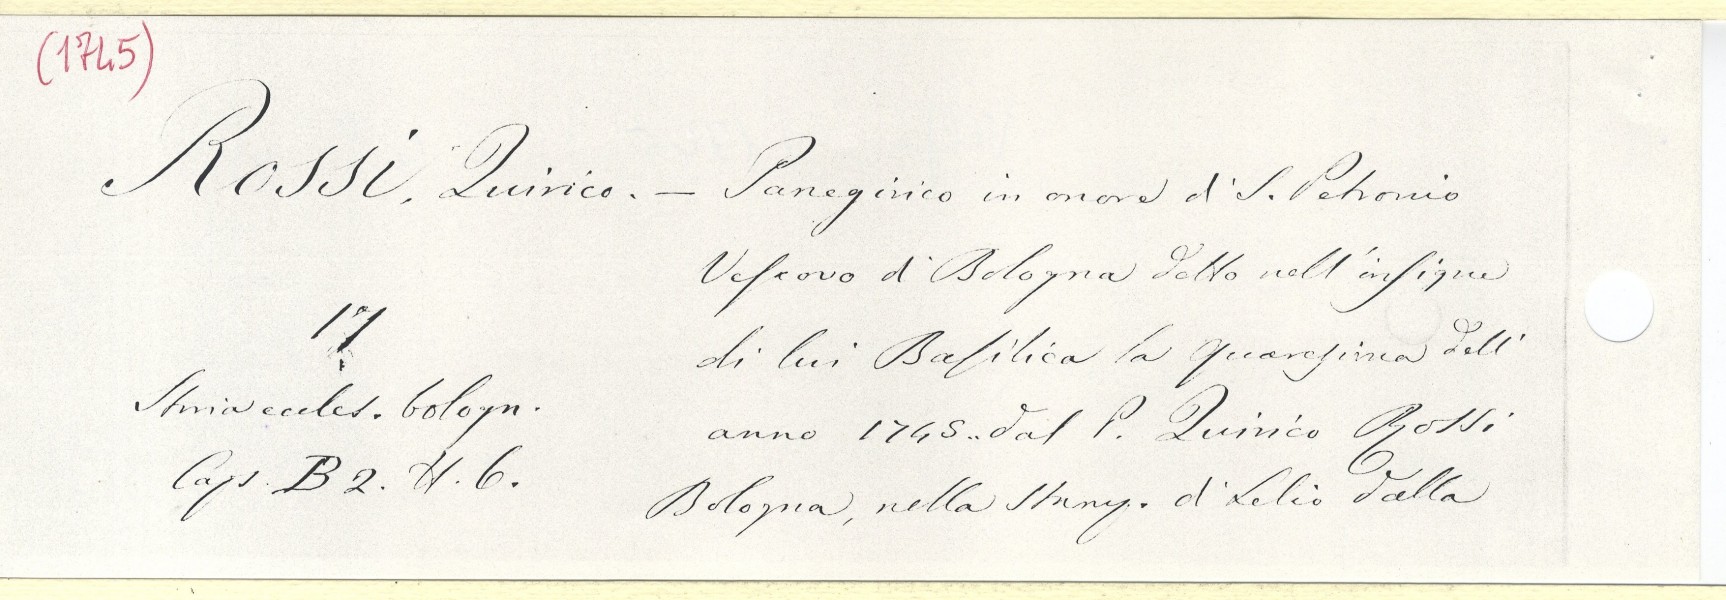 (1745)
Rossi, Quirico. — Panegirico in onore di S. Petronio
Vescovo di Bologna detto nell'insigne
di lui Basilica la quaresima dell'
anno 1745. dal P. Quirico Rossi
Bologna, nella Stamp. di Lelio dalla
17
Storia eccles. bologn.
Caps. B 2. N. 6.